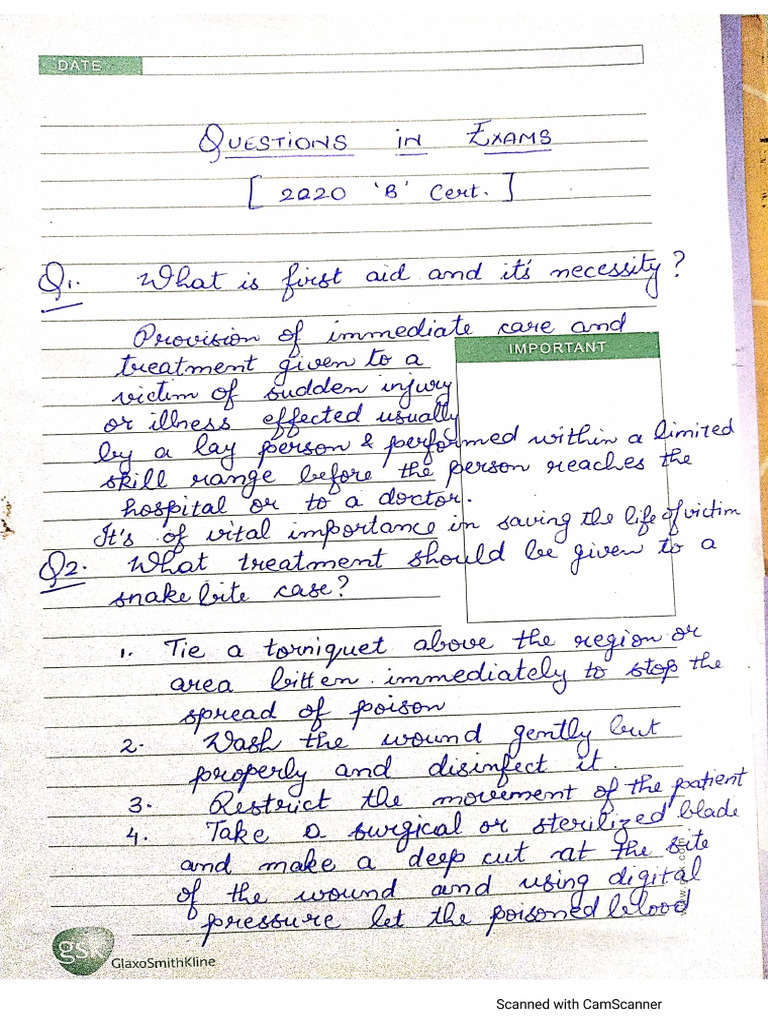 DATE
QUESTIONS IN EXAMS
[ 2020 'B' Cert. ]
Q1. What is first aid and it's necessity?
Provision of immediate care and
IMPORTANT
treatment given to a
victim of sudden injury
or illness effected usually
by a lay person & performed within a limited
skill range before the person reaches the
hospital or to a doctor.
It's of vital importance in saving the life of victim
Q2. What treatment should be given to a
snake bite case?
1. Tie a torniquet above the region or
area bitten immediately to stop the
spread of poison
2. Wash the wound gently but
properly and disinfect it.
3. Restrict the movement of the patient
4. Take a surgical or sterilized blade
and make a deep cut at the site
of the wound and using digital
pressure let the poisoned blood
gsk
GlaxoSmithKline
Scanned with CamScanner